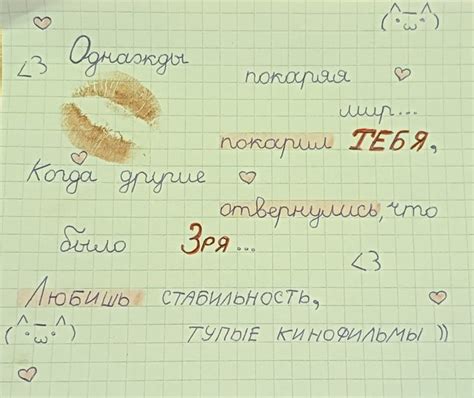 (^._.^)
Однажды
<3
покаряя
мир...
покарил ТЕБЯ,
Когда другие
отвернулись, что
было Зря...
<3
Любишь стабильность,
(^._.^) тупые кинофильмы ))